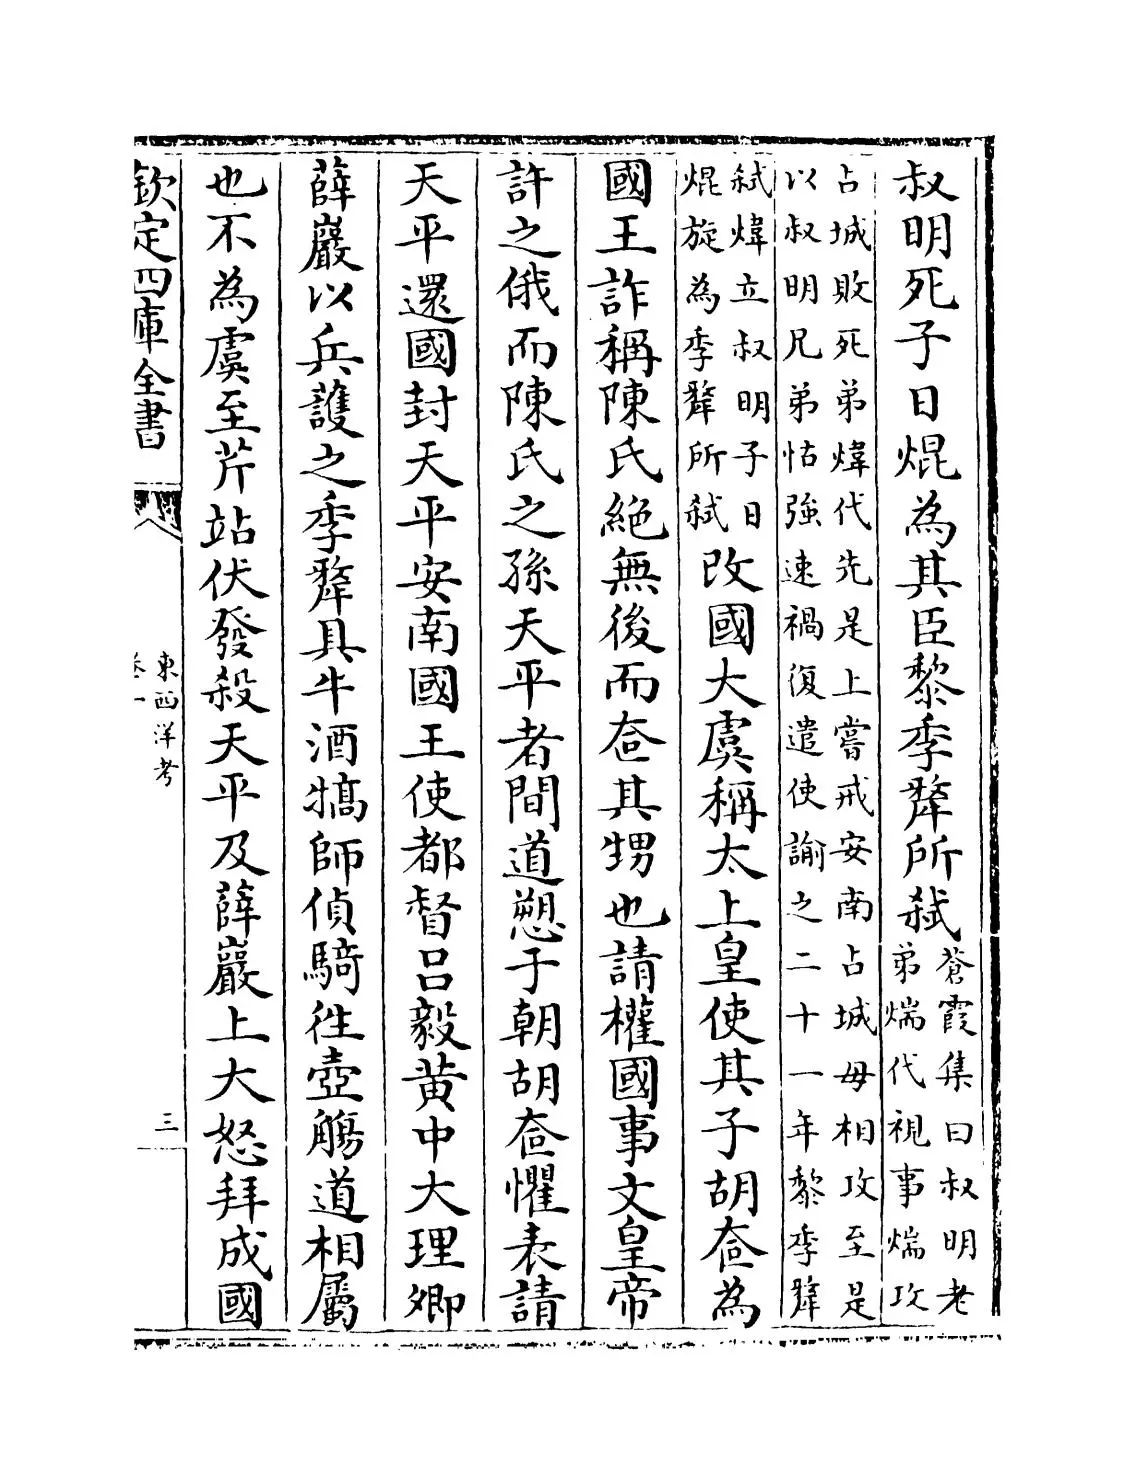 叔明死子日焜為其臣黎季犛所弑蒼霞集曰叔明老
弟煓代視事煓攻
占城敗死弟煒代先是上嘗戒安南占城毋相攻至是
以叔明兄弟怙強速禍復遣使諭之二十一年黎季犛
弑煒立叔明子日
焜旋為季犛所弑改國大虞稱太上皇使其子胡𡗨為
國王詐稱陳氏絕無後而𡗨其甥也請權國事文皇帝
許之俄而陳氏之孫天平者間道愬于朝胡𡗨懼表請
天平還國封天平安南國王使都督呂毅黃中大理卿
薛巖以兵護之季犛具牛酒犒師偵騎徃壺觴道相屬
也不為虞至芹站伏發殺天平及薛巖上大怒拜成國
欽定四庫全書
東西洋考
卷一
三